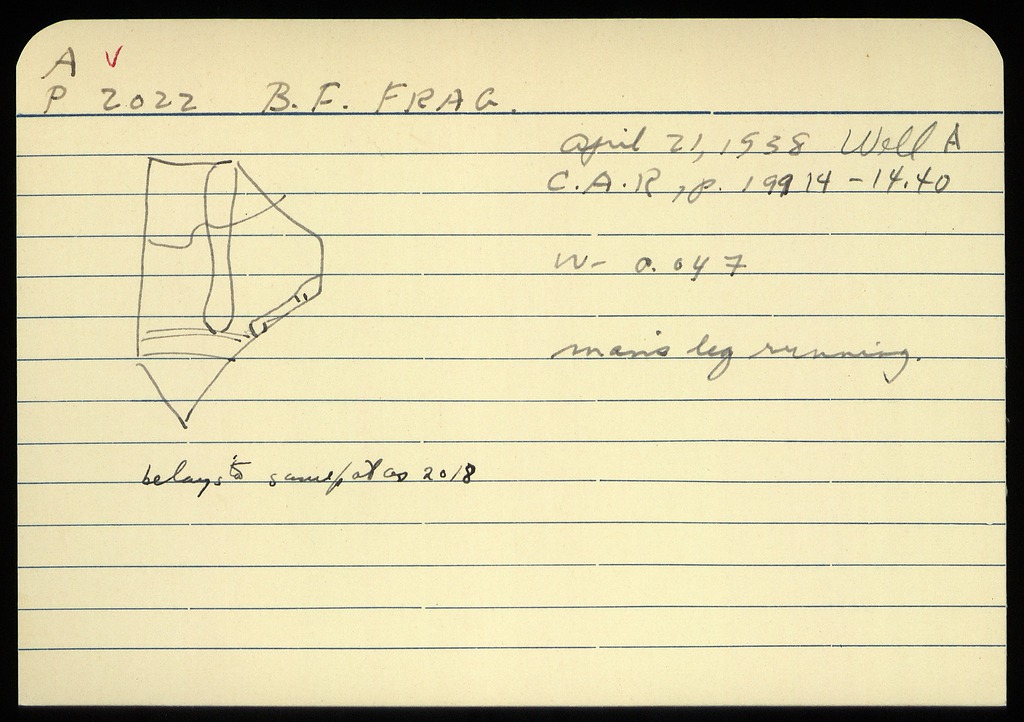 A v
P 2022 B.F. FRAG.
April 21, 1938 Well A
C.A.R, p. 199 14-14.40
W- 0.047
man's leg running.
belongs to same pot as 2018